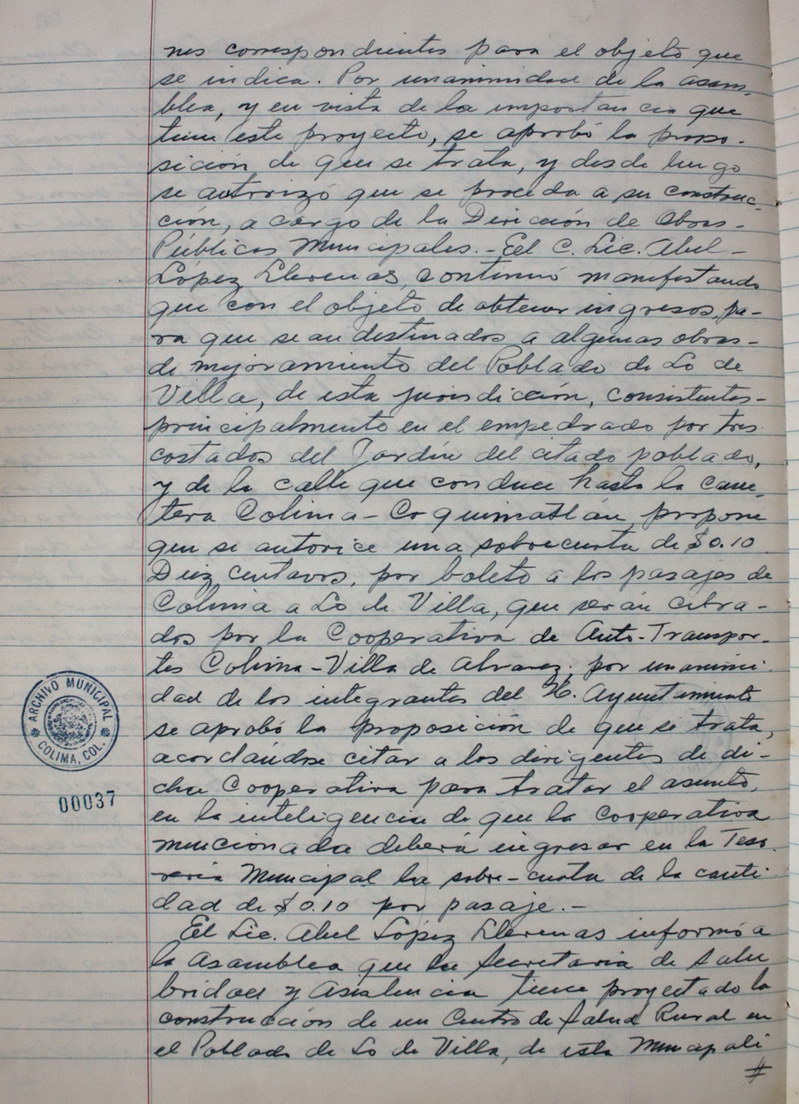 nes correspondientes para el objeto que
se indica. Por unanimidad de la asam-
blea, y en vista de la importancia que
tiene este proyecto, se aprobó la propo-
sición de que se trata, y desde luego
se autorizó que se proceda a su construc-
ción, a cargo de la Dirección de Obras-
Públicas Municipales.- El C. Lic. Abel-
López Llerenas, continuó manifestando
que con el objeto de obtener ingresos, pa-
ra que sean destinados a algunas obras-
de mejoramiento del Poblado de Lo de
Villa, de esta jurisdicción, consistentes-
principalmente en el empedrado por tres
costados del Jardín del citado poblado,
y de la calle que conduce hasta la carre-
tera Colima-Coquimatlán, propone
que se autorice una sobrecuota de $0.10
Diez centavos, por boleto a los pasajes de
Colima a Lo de Villa, que serán cobra-
dos por la Cooperativa de Auto-Transpor-
tes Colima-Villa de Alvarez. por unanimi-
dad de los integrantes del H. Ayuntamiento
se aprobó la proposición de que se trata,
acordándose citar a los dirigentes de di-
cha Cooperativa para tratar el asunto,
en la inteligencia de que la Cooperativa
mencionada deberá ingresar en la Teso-
rería Municipal la sobre-cuota de la canti-
dad de $0.10 por pasaje.-
El Lic. Abel López Llerenas informó a
la Asamblea que la Secretaría de Salu
bridad y Asistencia tiene proyectado la
construcción de un Centro de Salud Rural en
el Poblado de Lo de Villa, de esta Municipali
#
ARCHIVO MUNICIPAL
COLIMA, COL.
00037